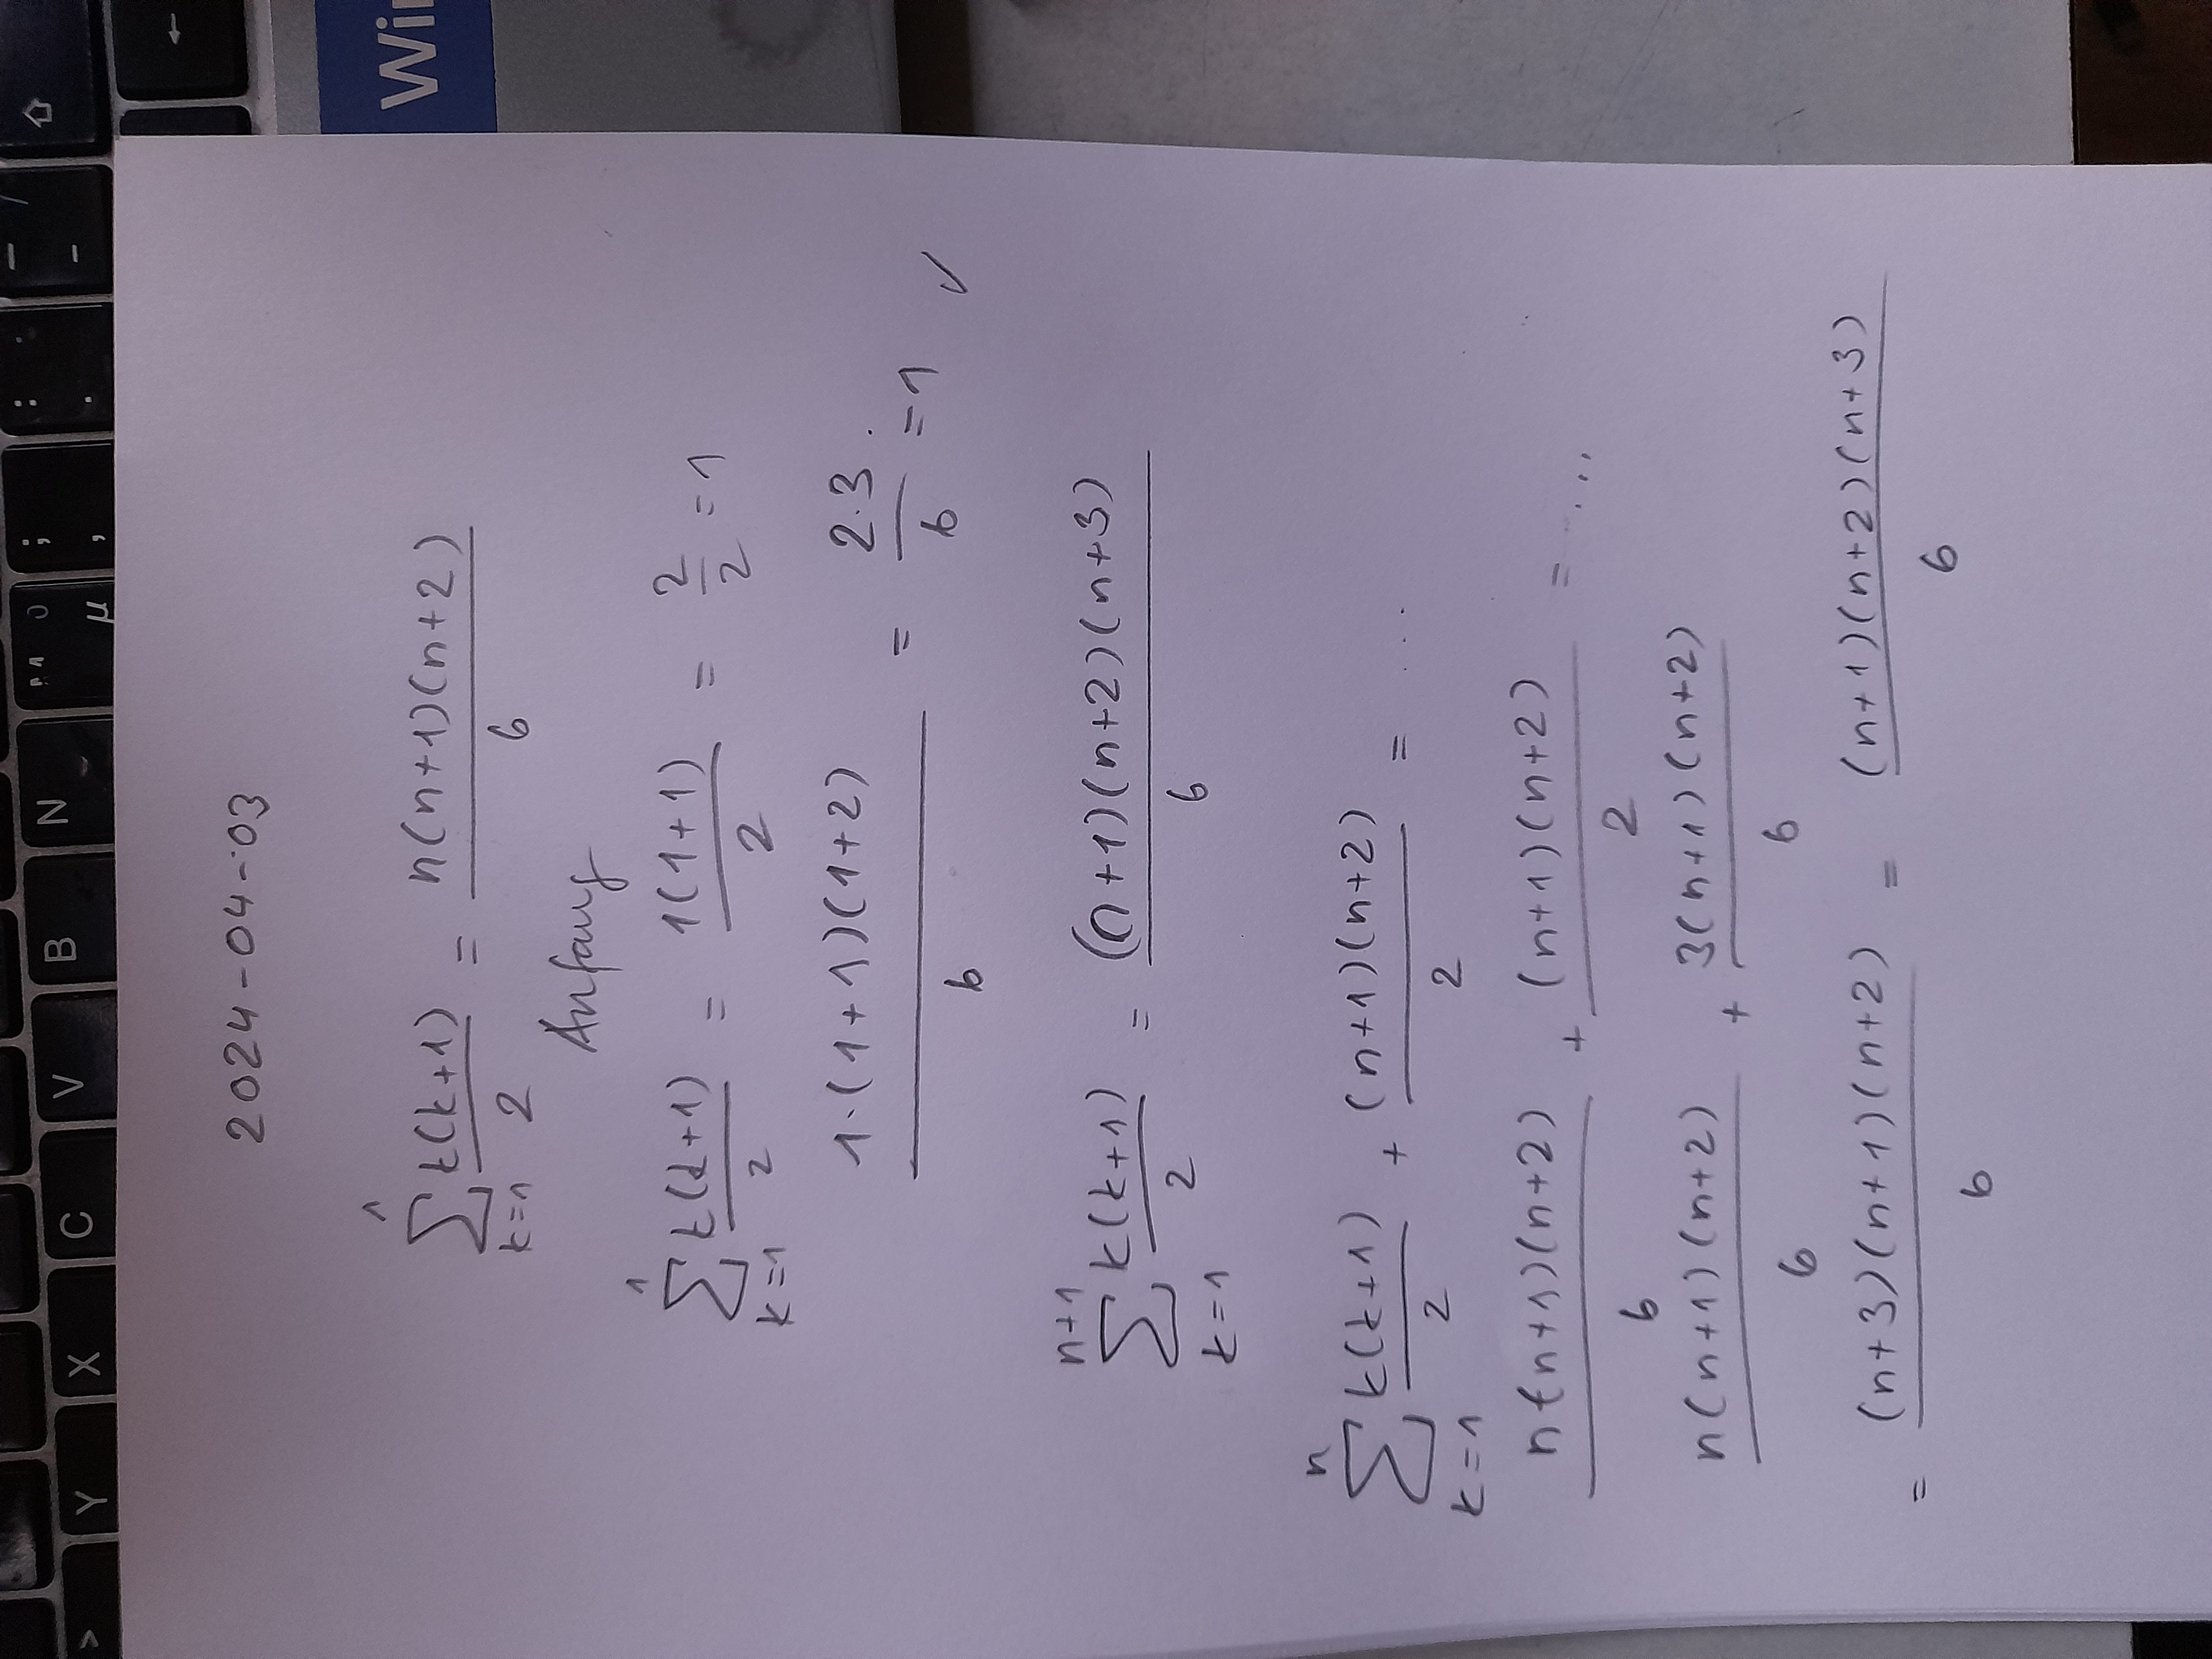 2024-04-03
1
∑ k(k+1)/2 = n(n+1)(n+2)/6
k=1
Anfang
1
∑ k(k+1)/2 = 1(1+1)/2 = 2/2 = 1
k=1
1·(1+1)(1+2)/6 = 2·3/6 = 1 ✓
n+1
∑ k(k+1)/2 = (n+1)(n+2)(n+3)/6
k=1
n
∑ k(k+1)/2 + (n+1)(n+2)/2 = ...
k=1
n(n+1)(n+2)/6 + (n+1)(n+2)/2 = ...
n(n+1)(n+2)/6 + 3(n+1)(n+2)/6
= (n+3)(n+1)(n+2)/6 = (n+1)(n+2)(n+3)/6
Win
N
B
V
C
X
Y
>
;
,
:
.
-
_
µ